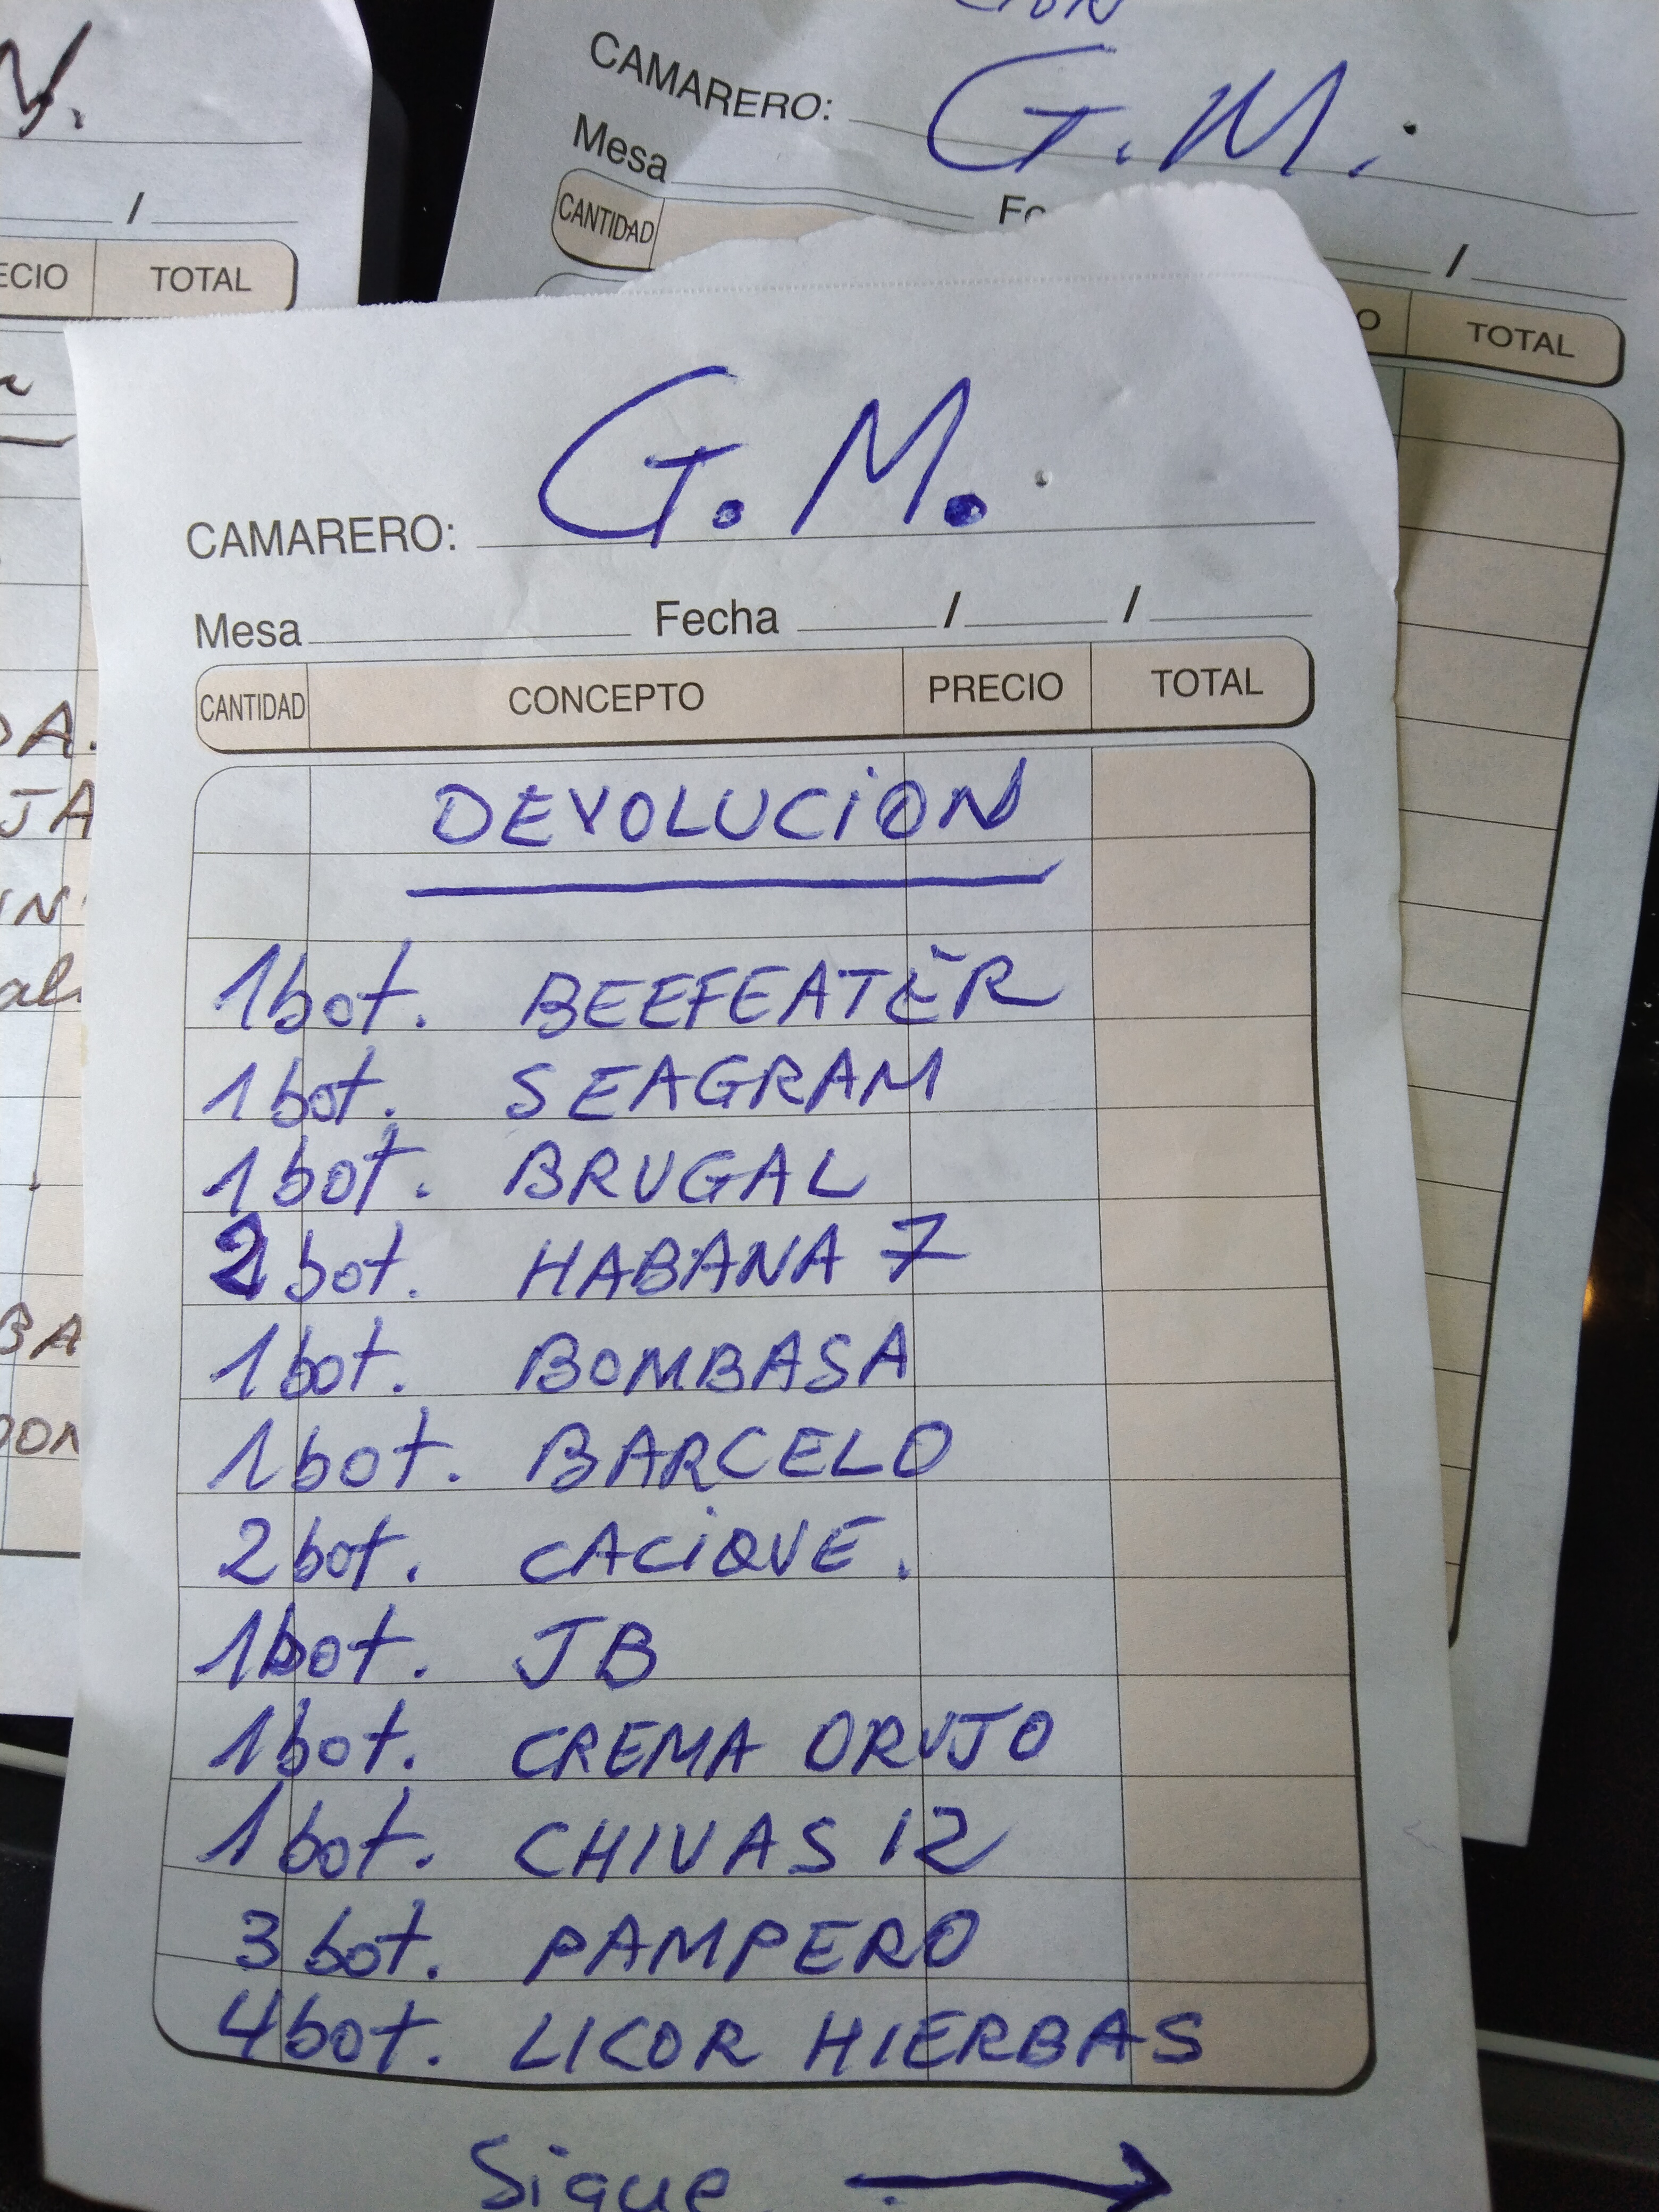 N.
/
ECIO TOTAL
DA.
JA
IN
BA
CION
CAMARERO: G.M.
Mesa
/
CANTIDAD
O TOTAL
G.M.
CAMARERO:
Mesa Fecha / /
CANTIDAD CONCEPTO PRECIO TOTAL
DEVOLUCION
1 bot. BEEFEATER
1 bot. SEAGRAM
1 bot. BRUGAL
2 bot. HABANA 7
1 bot. BOMBASA
1 bot. BARCELO
2 bot. CACIQUE.
1 bot. JB
1 bot. CREMA ORUJO
1 bot. CHIVAS 12
3 bot. PAMPERO
4 bot. LICOR HIERBAS
Sigue →